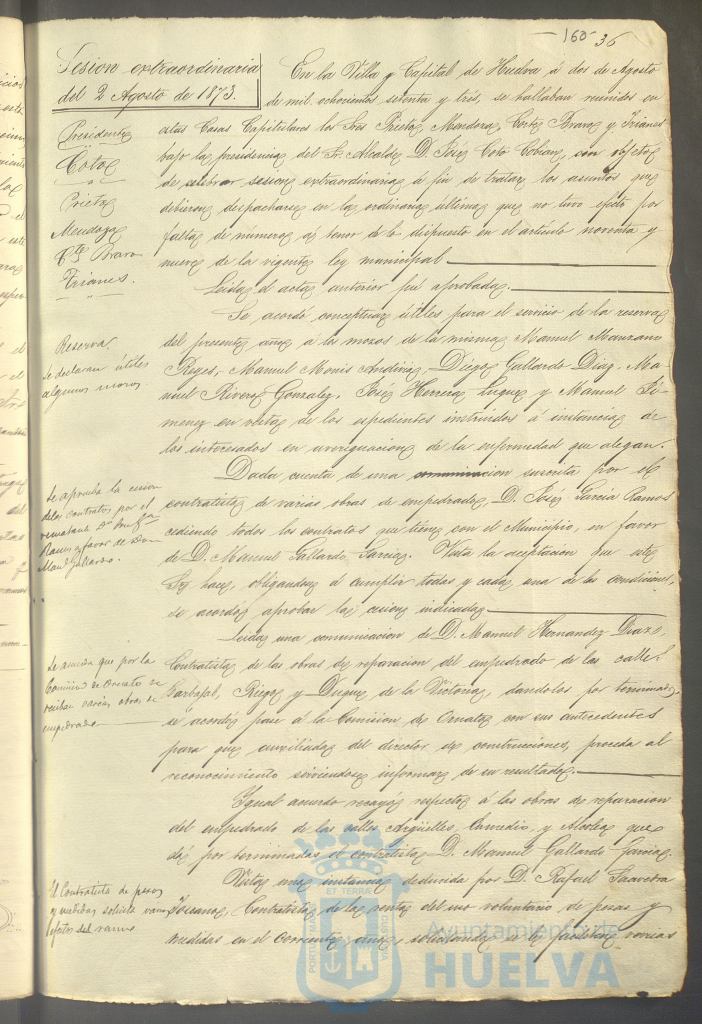 160 36
Sesion extraordinaria
del 2 Agosto de 1873.
Presidente
Coto
Prieto
Mendoza
Cte Bravo
Trianes.
En la Villa y Capital de Huelva á dos de Agosto
de mil ochocientos setenta y tres, se hallaban reunidos en
estas Casas Capitulares los Sres Prieto, Mendoza, Cortes Bravo y Trianes
bajo la presidencia del Sr. Alcalde D. José Coto Cobian, con objeto
de celebrar sesion extraordinaria á fin de tratar los asuntos que
debieron despacharse en la ordinaria ultima que no tuvo efecto por
falta de número á tenor de lo dispuesto en el artículo noventa y
nueve de la vigente ley municipal
Leida el acta anterior fué aprobada.
Reserva
Se declaran útiles
algunos mozos
Se acordó conceptuar útiles para el servicio de la reserva
del presente año á los mozos de la misma Manuel Manzano
Reyes, Manuel Monis, Diego Gallardo Diaz, Ma-
nuel Rivera Gonzalez, José Herrera Luque y Manuel Ji-
menez en vista de los espedientes instruidos á instancia de
los interesados en averiguacion de la enfermedad que alegan.
Se aprueba la cesion
de los contratos por el
rematante Dn José Gª
Ramos á favor de Don
Manl Gallardo.
Dada cuenta de una comunicacion suscrita por el
contratista de varias obras de empedrado, D. José García Ramos
cediendo todos los contratos que tiene con el Municipio, en favor
de D. Manuel Gallardo García. Vista la aceptacion que este
Sr. hace, obligandose á cumplir todas y cada una de las condiciones,
se acordó aprobar la cesion indicada
Se acuerda que por la
Comision de Ornato se
reciban varias obras de
empedrado
Leida una comunicacion de D. Manuel Hernandez Diaz,
Contratista de las obras de reparacion del empedrado de las calles
Garbafal, Riego y Duque de la Victoria, dandolas por terminadas,
se acordó pase á la Comision de Ornato con sus antecedentes
para que auxiliada del director de construcciones, proceda al
reconocimiento sirviendose informar de su resultado.
Igual acuerdo recayó respecto á las obras de reparacion
del empedrado de las calles Argüelles, Enmedio y Alcolea que
dá por terminadas el contratista D. Manuel Gallardo Garcia.
El Contratista de pesos
y medidas solicita varios
efectos del ramo
Vista una instancia deducida por D. Rafael Saavedra
Toscano, Contratista de las rentas del uso voluntario de pesas y
medidas en el corriente año, solicitando se le faciliten varias
PORTUS MARIS ET TERRÆ CUSTODIA
Ayuntamiento de
HUELVA